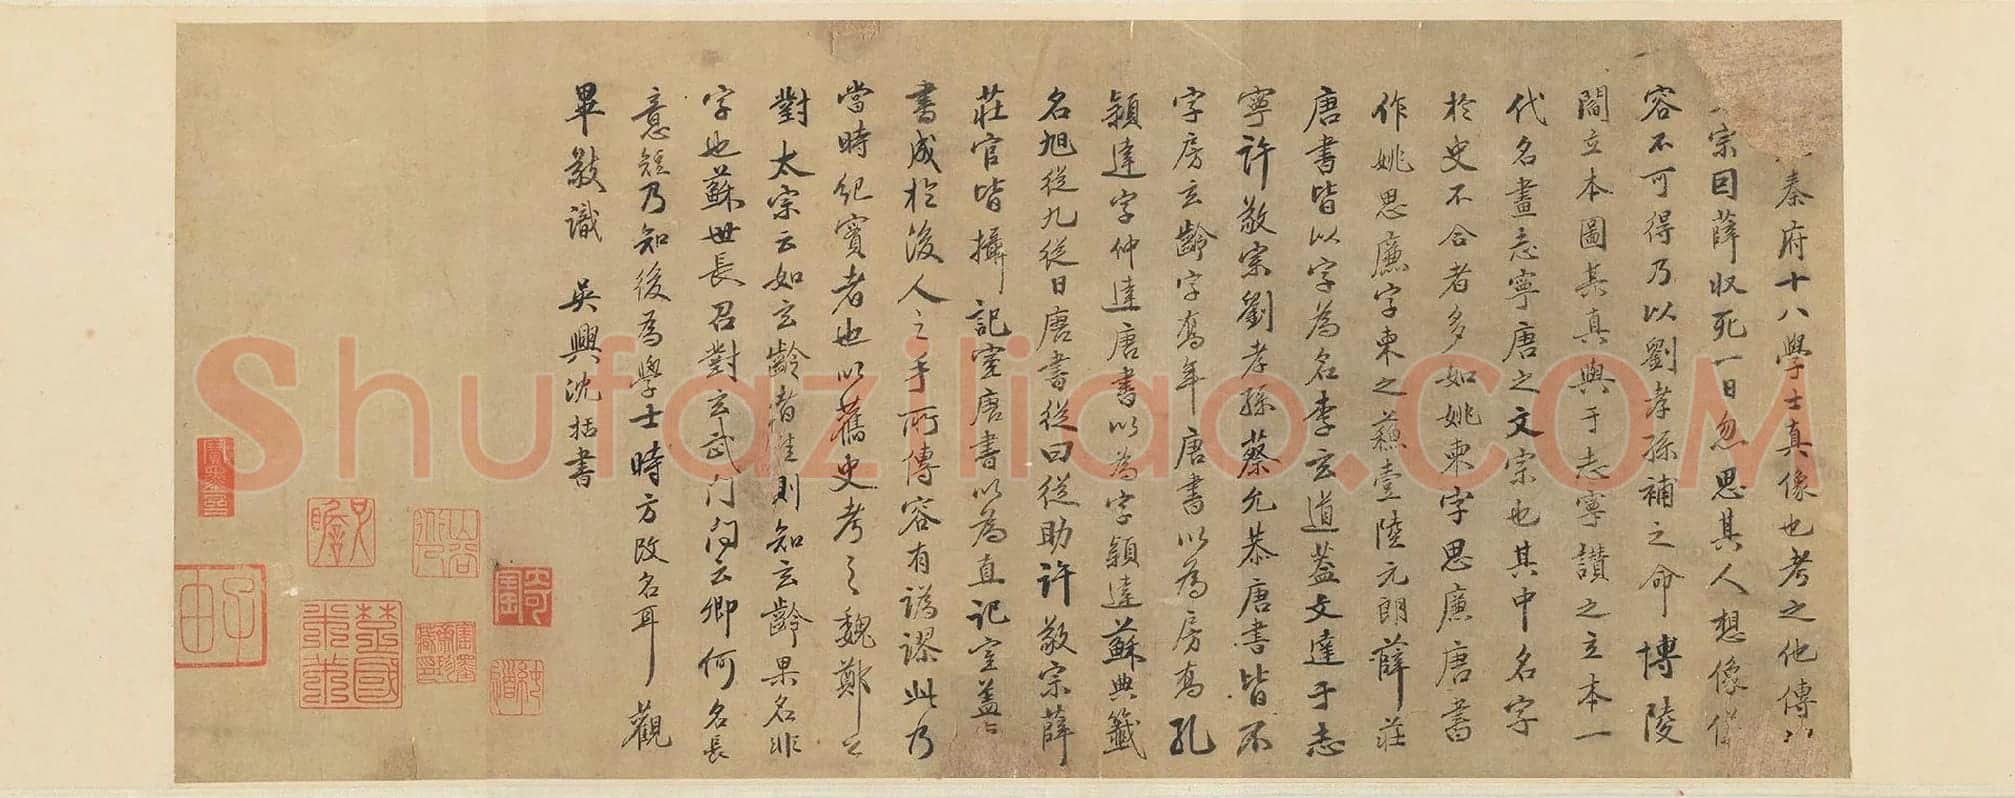 秦府十八學士真像也考之他傳
宗曰薛收死一日忽思其人想像儀
容不可得乃以劉孝孫補之命博陵
閻立本圖其真與于志寧讃之立本一
代名畫志寧唐之文宗也其中名字
於史不合者多如姚柬字思廉唐書
作姚思廉字柬之蘓壹陸元朗薛莊
唐書皆以字為名李玄道蓋文達于志
寧許敬宗劉孝孫蔡允恭唐書皆不
字房玄齡字喬年唐書以為房喬孔
穎達字仲達唐書以為字穎達蘇典籤
名旭從九從日唐書從曰從助許敬宗薛
莊官皆攝記室唐書以為直記室蓋
書成於後人之手所傳容有譌謬此乃
當時紀實者也以舊史考之魏鄭公
對太宗云如玄齡者則知玄齡果名非
字也蘇世長召對玄武门問云卿何名長
意短乃知後為學士時方改名耳觀
畢敬識 吳興沈括書
Shufaziliao.COM